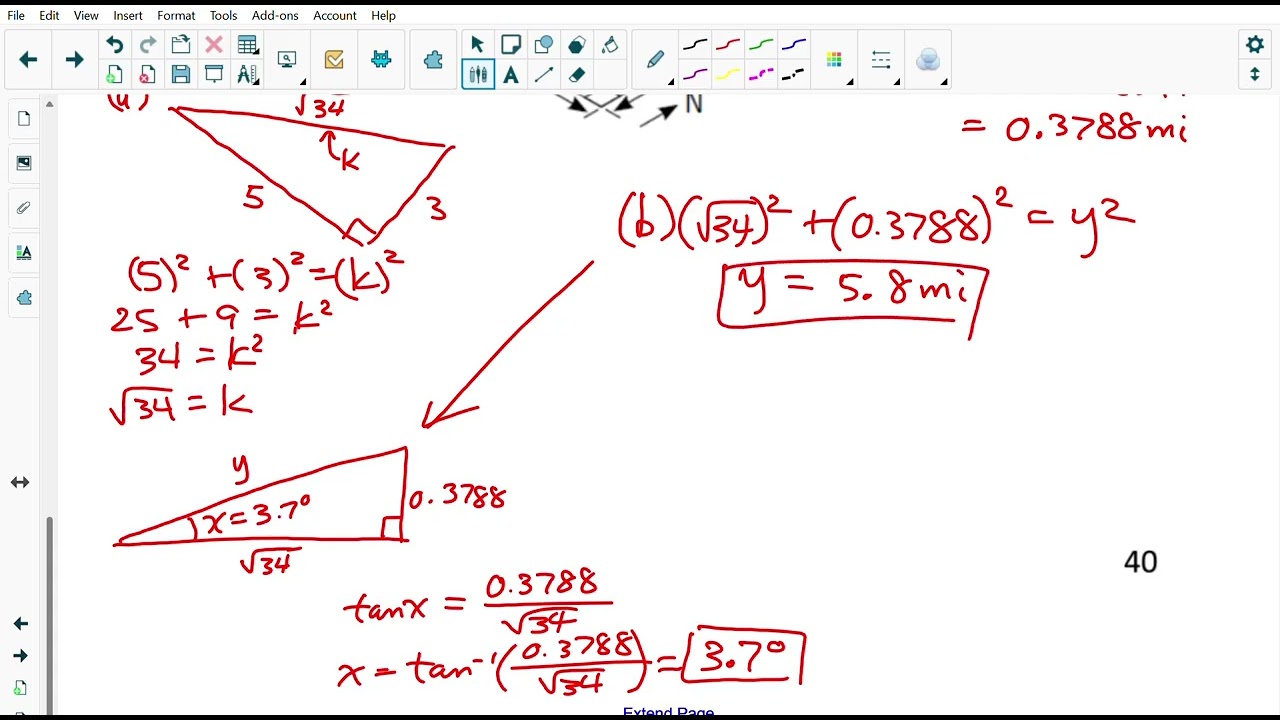 File Edit View Insert Format Tools Add-ons Account Help
A
√34
N
= 0.3788mi
k
5
3
(b)(√34)² + (0.3788)² = y²
y = 5.8mi
(5)² + (3)² = (k)²
25 + 9 = k²
34 = k²
√34 = k
y
x = 3.7°
0.3788
√34
40
tanx = 0.3788/√34
x = tan⁻¹(0.3788/√34) = 3.7°
Extend Page